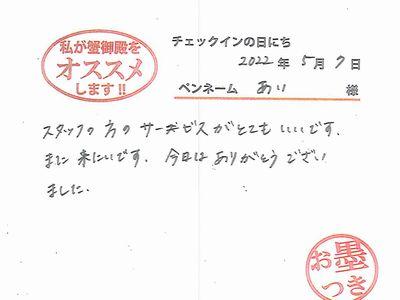 私が蟹御殿を
オススメ
します!!
チェックインの日にち
2022年 5月 7日
ペンネーム あい 様
スタッフの方のサービスがとてもいいです。
また来たいです。今日はありがとうござい
ました。
お墨
つき